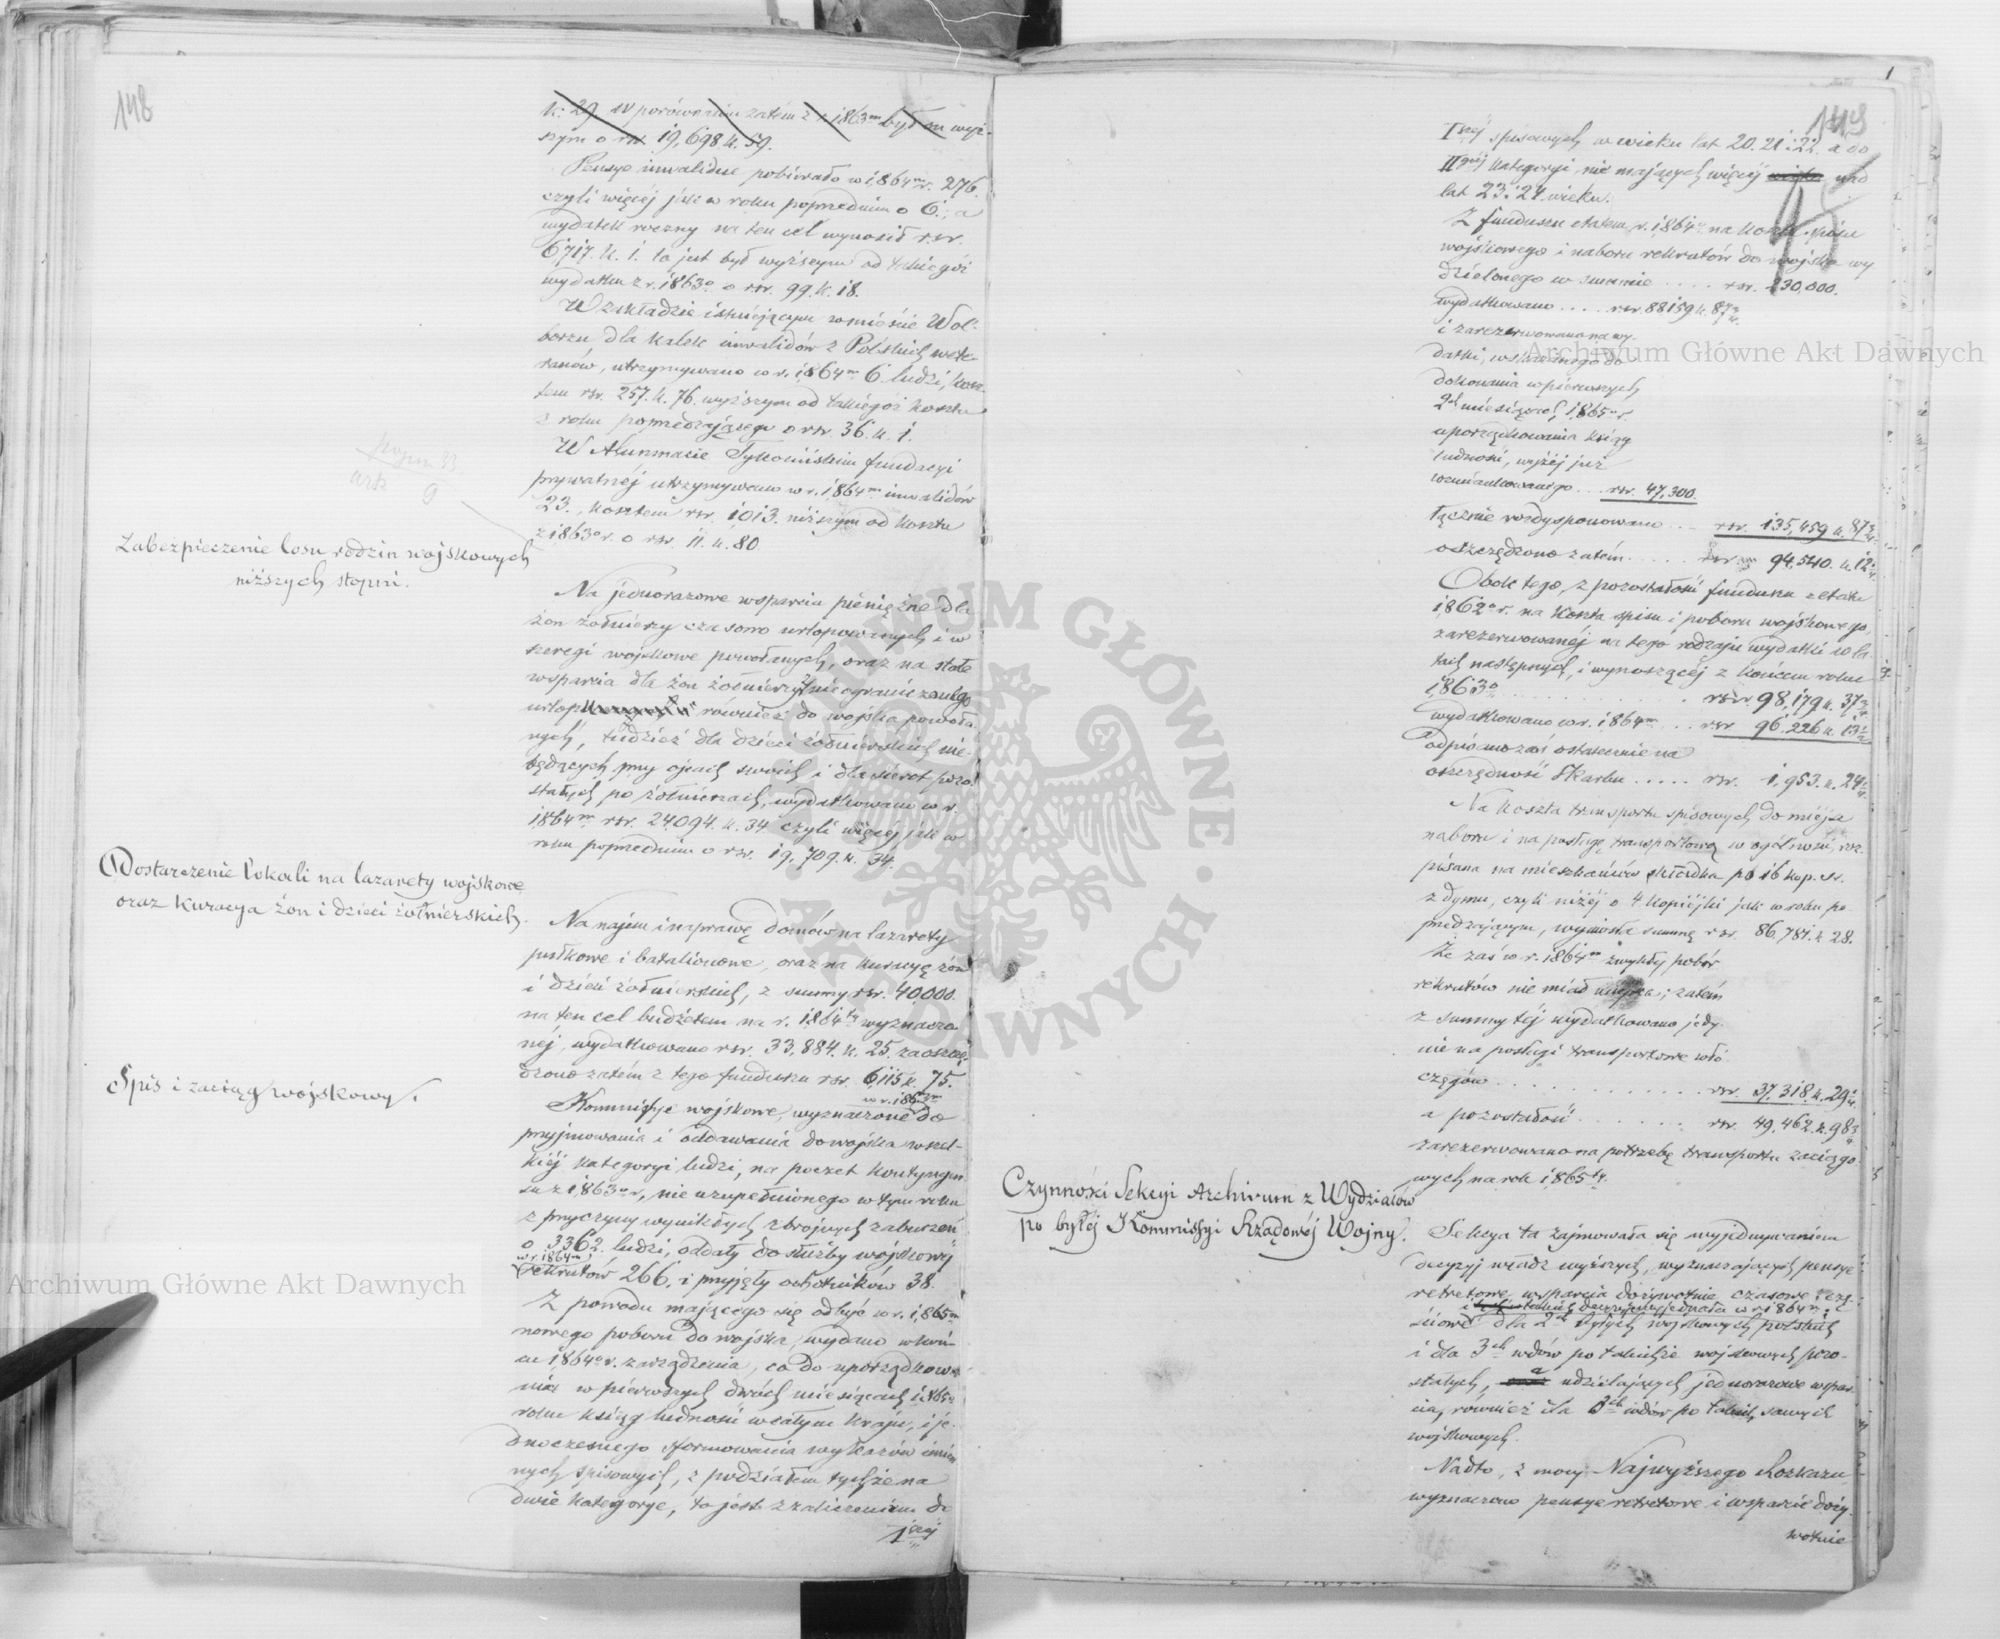 148
k. 29. W porównaniu zatém z r. 1863m był on wyż-
szym o rsr. 19,698 k. 59.
Pensye inwalidne pobierało w 1864m r. 276.
czyli więcéj jak w roku poprzednim o 6., a
wydatek roczny na ten cel wynosił rsr.
6717. k. 1. to jest był wyższym od takiegoż
wydatku z r. 1863o o rsr. 99. k. 18.
W zakładzie istniejącym w mieście Wol-
borzu dla kalek inwalidów z Polskich wete-
ranów, utrzymywano w r. 1864m 6. ludzi, kosz-
tem rsr. 257. k. 76. wyższym od takiegoż kosztu
z roku poprzedzającego o rsr. 36. k. 1.
W Alumnacie Tykocińskim fundacyi
prywatnéj utrzymywano w r. 1864m inwalidów
23., kosztem rsr. 1013. niższym od kosztu
z 1863o r. o rsr. 11. k. 80.
Zabezpieczenie losu rodzin wojskowych
niższych stopni.
Na jednorazowe wsparcia pieniężne dla
żon żołnierzy czasowo urlopowanych i w
szeregi wojskowe powołanych, oraz na stałe
wsparcia dla żon żołnierzy nieograniczonego
urlopu również do wojska powoła-
nych, tudzież dla dzieci żołnierskich nie-
będących przy ojcach swoich i dla sierot pozo-
stałych po żołnierzach, wydatkowano w r.
1864m rsr. 24094. k. 34 czyli więcej jak w
roku poprzednim o rsr. 19,709. k. 34.
Dostarczenie lokali na lazarety wojskowe
oraz kuracya żon i dzieci żołnierskich.
Na najem i naprawę domów na lazarety
pułkowe i batalionowe, oraz na kuracyę żon
i dzieci żołnierskich, z summy rsr. 40,000.
na ten cel budżetem na r. 1864ty wyznaczo-
néj, wydatkowano rsr. 33,884. k. 25. zaoszczę-
dzono zatém z tego funduszu rsr. 6,115 k. 75.
Spis i zaciąg wojskowy.
w r. 1864m
Kommissye wojskowe, wyznaczone do
przyjmowania i oddawania do wojska wszel-
kiéj kategoryi ludzi, na poczet kontyngen-
su z 1863o r., nie uzupełnionego w tym roku
z przyczyny wynikłych zbrojnych zaburzeń
o 3362. ludzi, oddały do służby wojskowéj
w r. 1864m
rekrutów 266. i przyjęły ochotników 38.
Z powodu mającego się odbyć w r. 1865m
nowego poboru do wojska, wydano w koń-
cu 1864o r. zarządzenia, co do uporządkowa-
nia w pierwszych dwóch miesiącach 1865o
roku ksiąg ludności w całym kraju, i je-
dnoczesnego sformowania wykazów imien-
nych spisowych, z podziałem tychże na
dwie kategorye, to jest z zaliczeniem do
1széj
1
149
Iszéj spisowych w wieku lat 20. 21 i 22. a do
IIgiéj kategoryi, nie mających więcéj nad
lat 23. i 24. wieku.
Z funduszu etatem r. 1864o na koszta spisu
wojskowego i naboru rekrutów do wojska wy-
dzielonego w summie . . . . rsr. 230,000.
wydatkowano . . . . rsr 88159 k. 87 3/4
i zarezerwowano na wy-
datki, wskazanego do
dokonania w pierwszych
2ch miesiącach 1865o r.
uporządkowania ksiąg
ludności, wyżej już
wzmiankowanego . . . rsr. 47,300.
łącznie rozdysponowano . . . rsr. 135,459 k. 87 3/4.
oszczędzono zatém . . . . . rsr. 94,540. k. 12 1/4.
Obok tego, z pozostałości funduszu z etatu
1862o r. na koszta spisu i poboru wojskowego,
zarezerwowanéj na tego rodzaju wydatki w la-
tach następnych, i wynoszącéj z końcem roku
1863o . . . . . . . . rsr. 98,179 k. 37 3/4
wydatkowano w r. 1864m . . . rsr 96,226 k. 13 1/2
odpisano zaś ostatecznie na
oszczędność Skarbu . . . . . rsr. 1,953. k. 24 1/4.
Na koszta transportu spisowych do miejsc
naboru i na posługę transportową w ogólności, roz-
pisana na mieszkańców składka po 16 kop. sr.
z dymu, czyli niżéj o 4 kopiéjki jak w roku po-
przedzającym, wyniosła summę rsr. 86,781. k 28.
Że zaś w r. 1864m zwykły pobór
rekrutów nie miał miejsca; zatém
z summy téj wydatkowano jedy-
nie na posługi transportowe włó-
częgów . . . . . . . . . . . rsr. 37,318. k. 29 1/4.
a pozostałość . . . . . . . rsr. 49,462. k. 98 3/4
zarezerwowano na potrzebę transportu zaciągo-
wych na rok 1865ty.
Czynności Sekcyi Archiwum z Wydziałów
po byłéj Kommissyi Rządowéj Wojny.
Sekcya ta zajmowała się wyjednywaniem
decyzyj władz wyższych, wyznaczających pensye
retretowe, wsparcia dożywotnie, czasowe i czę-
decyzye wyjednała w r. 1864m:
ściowe dla 2ch byłych wojskowych polskich
i dla 3ch wdów po takichże wojskowych pozo-
stałych, a udzielających jednorazowe wspar-
cia, również dla 3ch wdów po takich samych
wojskowych.
Nadto, z mocy Najwyższego Rozkazu
wyznaczono pensye retretowe i wsparcie doży-
wotnie
Archiwum Główne Akt Dawnych
Archiwum Główne Akt Dawnych
ARCHIWUM GŁÓWNE AKT DAWNYCH